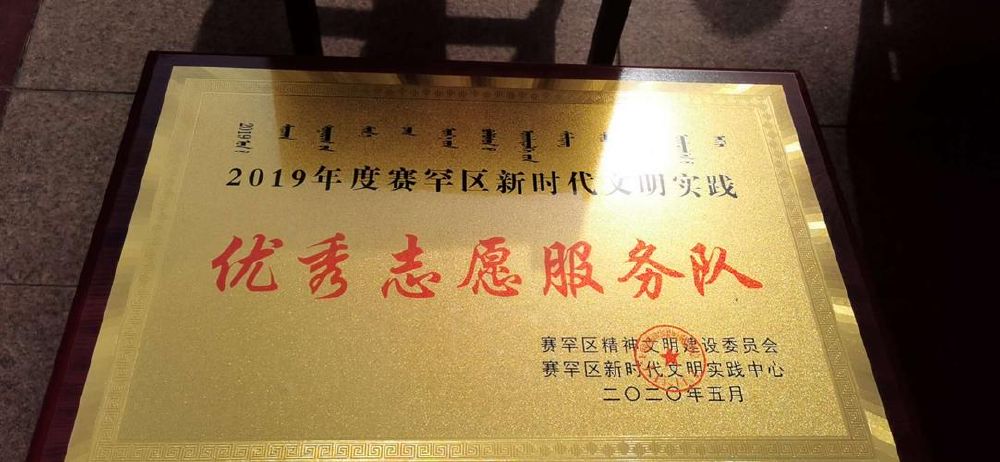 2019年度赛罕区新时代文明实践
优秀志愿服务队
赛罕区精神文明建设委员会
赛罕区新时代文明实践中心
二〇二〇年五月